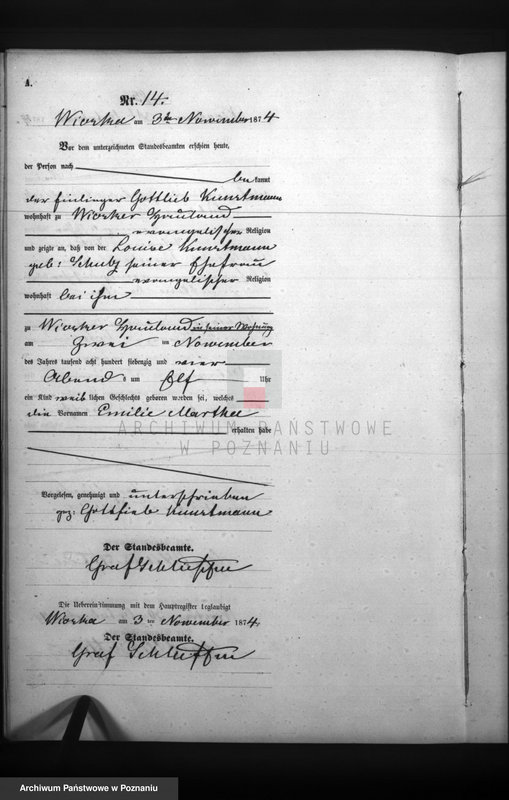 A.
Nr. 14.
Wiorka am 3ten November 1874
Vor dem unterzeichneten Standesbeamten erschien heute,
der Person nach be kannt
der Einlieger Gottlieb Kunstmann
wohnhaft zu Wiorker Hauland
evangelischer Religion
und zeigte an, daß von der Louise Kunstmann
geb: Schulz seiner Ehefrau
evangelischer Religion
wohnhaft bei ihm
zu Wiorker Hauland in seiner Wohnung
am Zwei ten November
des Jahres tausend acht hundert siebenzig und vier
Abend s um Elf Uhr
ein Kind weib lichen Geschlechts geboren worden sei, welches
die Vornamen Emilie Martha
erhalten habe
ARCHIWUM PAŃSTWOWE
W POZNANIU
Vorgelesen, genehmigt und unterschrieben
gez: Gottlieb Kunstmann
Der Standesbeamte.
Graf
Die Uebereinstimmung mit dem Hauptregister beglaubigt
Wiorka am 3 ten November 1874.
Der Standesbeamte.
Graf
Archiwum Państwowe w Poznaniu